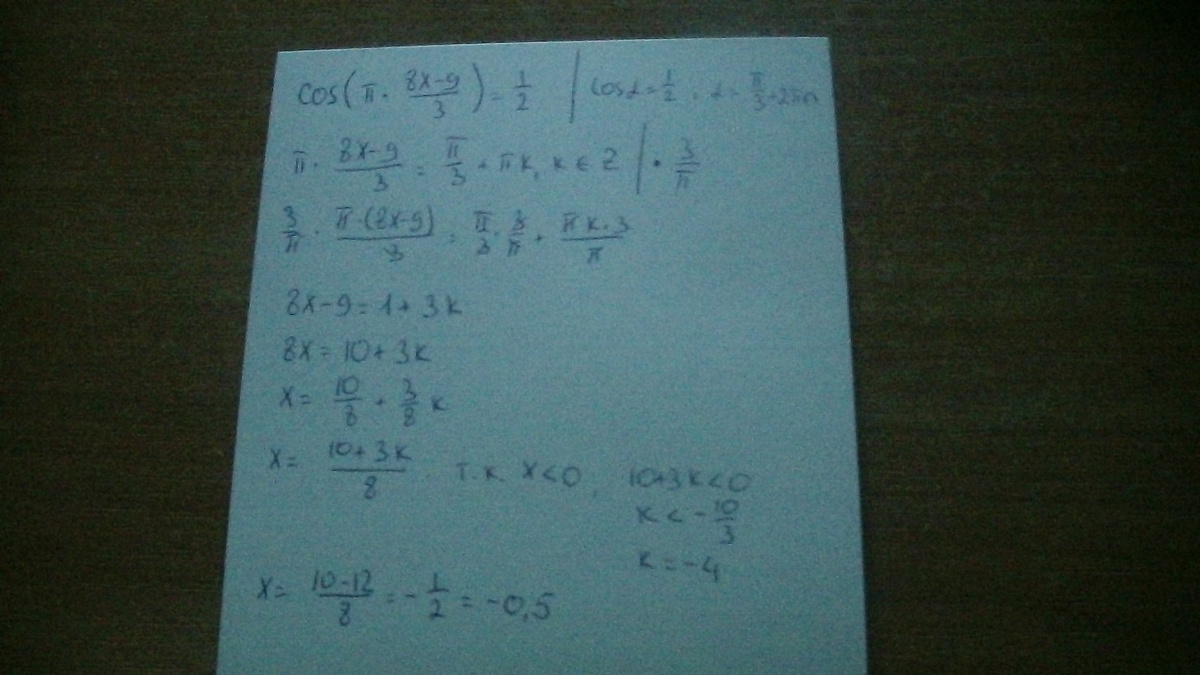 cos(π · (8x-9)/3) = 1/2 | cos α = 1/2, α = π/3 + 2πn
π · (8x-9)/3 = π/3 + πk, k ∈ Z | · 3/π
3/π · (π·(8x-9))/3 = π/3 · 3/π + (πk·3)/π
8x-9 = 1 + 3k
8x = 10 + 3k
x = 10/8 + 3/8 k
x = (10+3k)/8 т.к. x<0, 10+3k<0
k < -10/3
k = -4
x = (10-12)/8 = -1/2 = -0,5